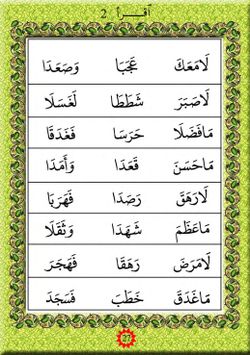 أقرأ 2
لَامَعَكَ عَجَبًا وَصَعَدَا
لَاصَبَرَ شَطَطَا لَغَسَلَا
مَافَضَلَا حَرَسَا فَغَدَقَا
مَاحَسَنَ قَعَدَا وَأَمَدَا
لَارَهَقَ رَصَدَا فَهَرَبَا
مَاعَظَمَ شَهَدَا وَثَقَلَا
لَامَرَضَ رَهَقَا فَهَجَرَ
مَاغَدَقَ خَطَبَ فَسَجَدَ
27